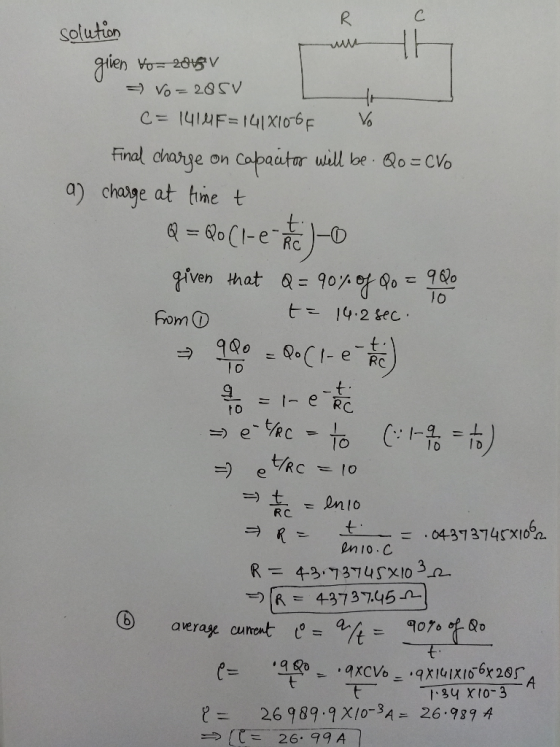 solution
R C
given V0 = 285 V
⇒ V0 = 285V
C = 141μF = 141×10-6F
V0
Final charge on capacitor will be. Q0 = CV0
a) charge at time t
Q = Q0(1-e-t/RC)-①
given that Q = 90% of Q0 = 9Q0/10
t = 14.2 sec.
From ①
⇒ 9Q0/10 = Q0(1-e-t/RC)
9/10 = 1-e-t/RC
⇒ e-t/RC = 1/10 (∵ 1-9/10 = 1/10)
⇒ et/RC = 10
⇒ t/RC = ln10
⇒ R = t/ln10.C = .04373745×106Ω
R = 43.73745×103Ω
⇒ R = 43737.45Ω
ⓑ average current i = q/t = 90% of Q0/t.
i = .9Q0/t = .9×CV0/t = .9×141×10-6×285/1.34×10-3 A
i = 26989.9×10-3A = 26.989 A
⇒ i = 26.99A